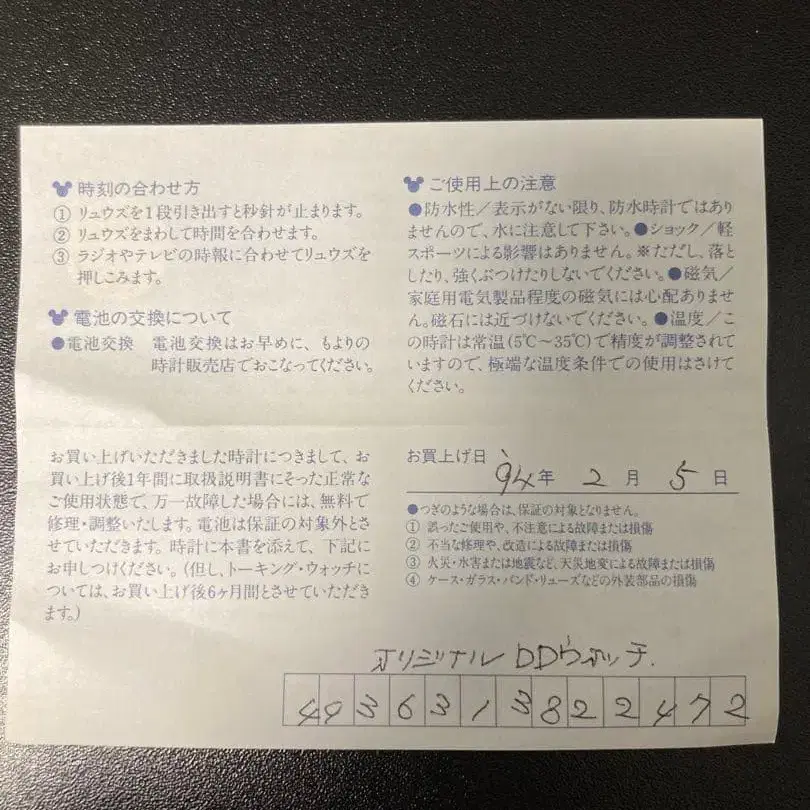 時刻の合わせ方
① リュウズを1段引き出すと秒針が止まります。
② リュウズをまわして時間を合わせます。
③ ラジオやテレビの時報に合わせてリュウズを
押しこみます。
電池の交換について
●電池交換　電池交換はお早めに、もよりの
時計販売店でおこなってください。
ご使用上の注意
●防水性／表示がない限り、防水時計ではあり
ませんので、水に注意して下さい。●ショック／軽
スポーツによる影響はありません。※ただし、落と
したり、強くぶつけたりしないでください。●磁気／
家庭用電気製品程度の磁気には心配ありませ
ん。磁石には近づけないでください。●温度／こ
の時計は常温(5℃〜35℃)で精度が調整されて
いますので、極端な温度条件での使用はさけて
ください。
お買い上げいただきました時計につきまして、お
買い上げ後1年間に取扱説明書にそった正常な
ご使用状態で、万一故障した場合には、無料で
修理・調整いたします。電池は保証の対象外とさ
せていただきます。時計に本書を添えて、下記に
お申しつけください。(但し、トーキング・ウォッチに
ついては、お買い上げ後6ヶ月間とさせていただき
ます。)
お買上げ日 '94年 2月 5日
●つぎのような場合は、保証の対象となりません。
① 誤ったご使用や、不注意による故障または損傷
② 不当な修理や、改造による故障または損傷
③ 火災・水害または地震など、天災地変による故障または損傷
④ ケース・ガラス・バンド・リューズなどの外装部品の損傷
オリジナルDDウォッチ.
4936313822472